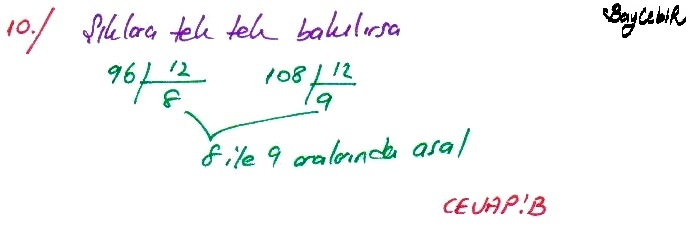 10./ Şıklara tek tek bakılırsa
BayCebiR
96 | 12
8
108 | 12
9
8 ile 9 aralarında asal
CEVAP:B